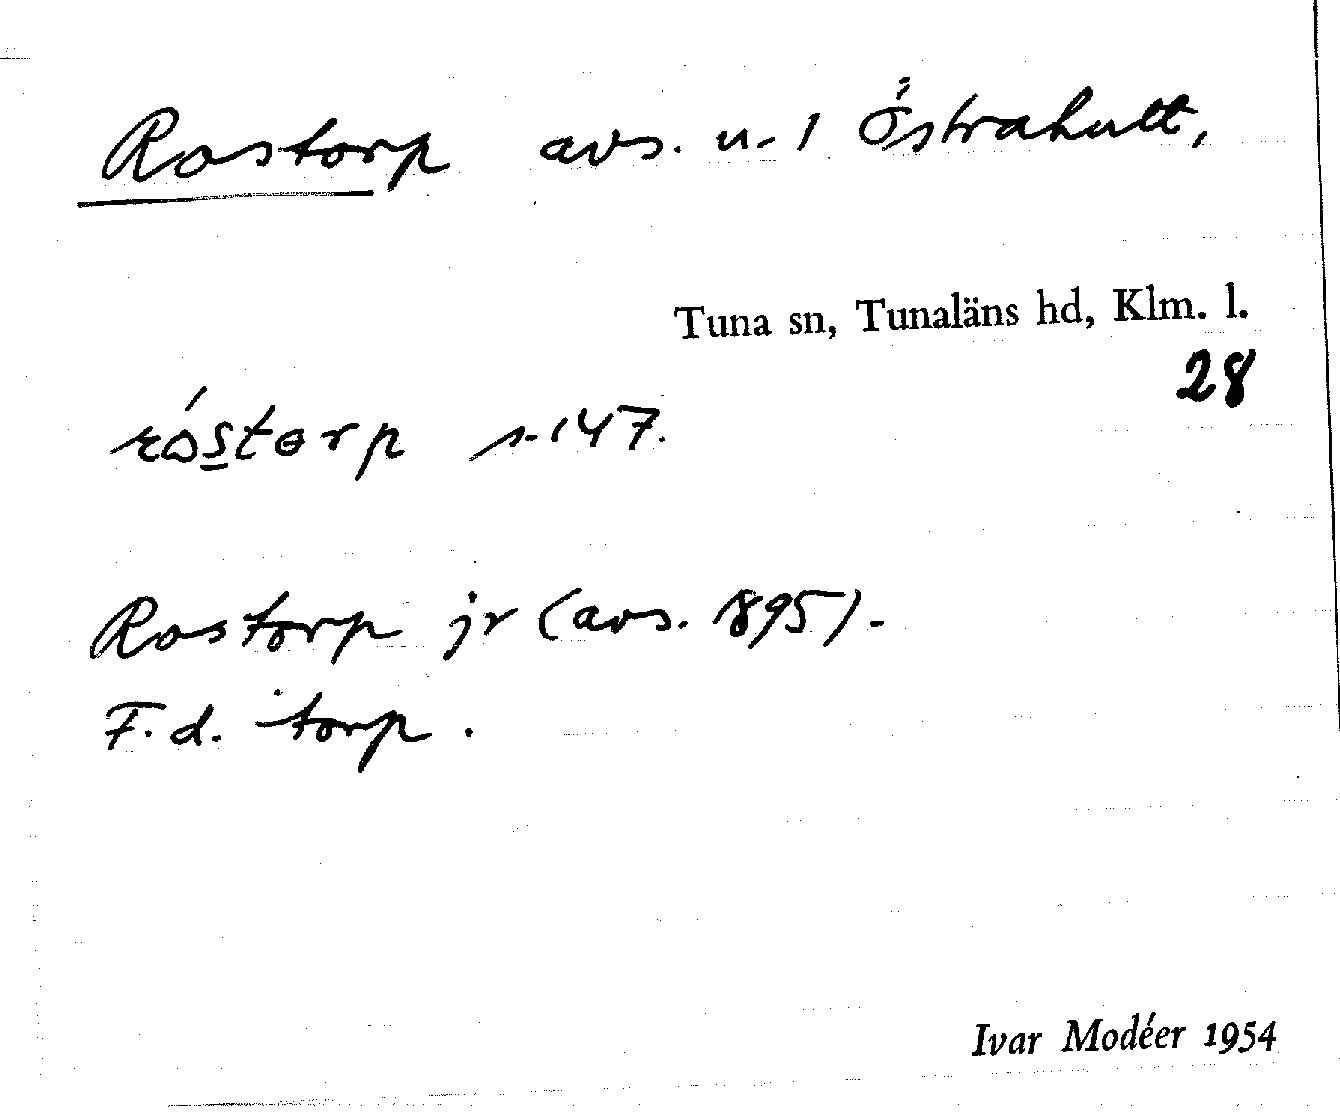 Rostorp avs. u. 1 Östrahult,
Tuna sn, Tunaläns hd, Klm. l.
28
s. 147.
Rostorp jr (avs. 1895).
F.d. torp.
Ivar Modéer 1954